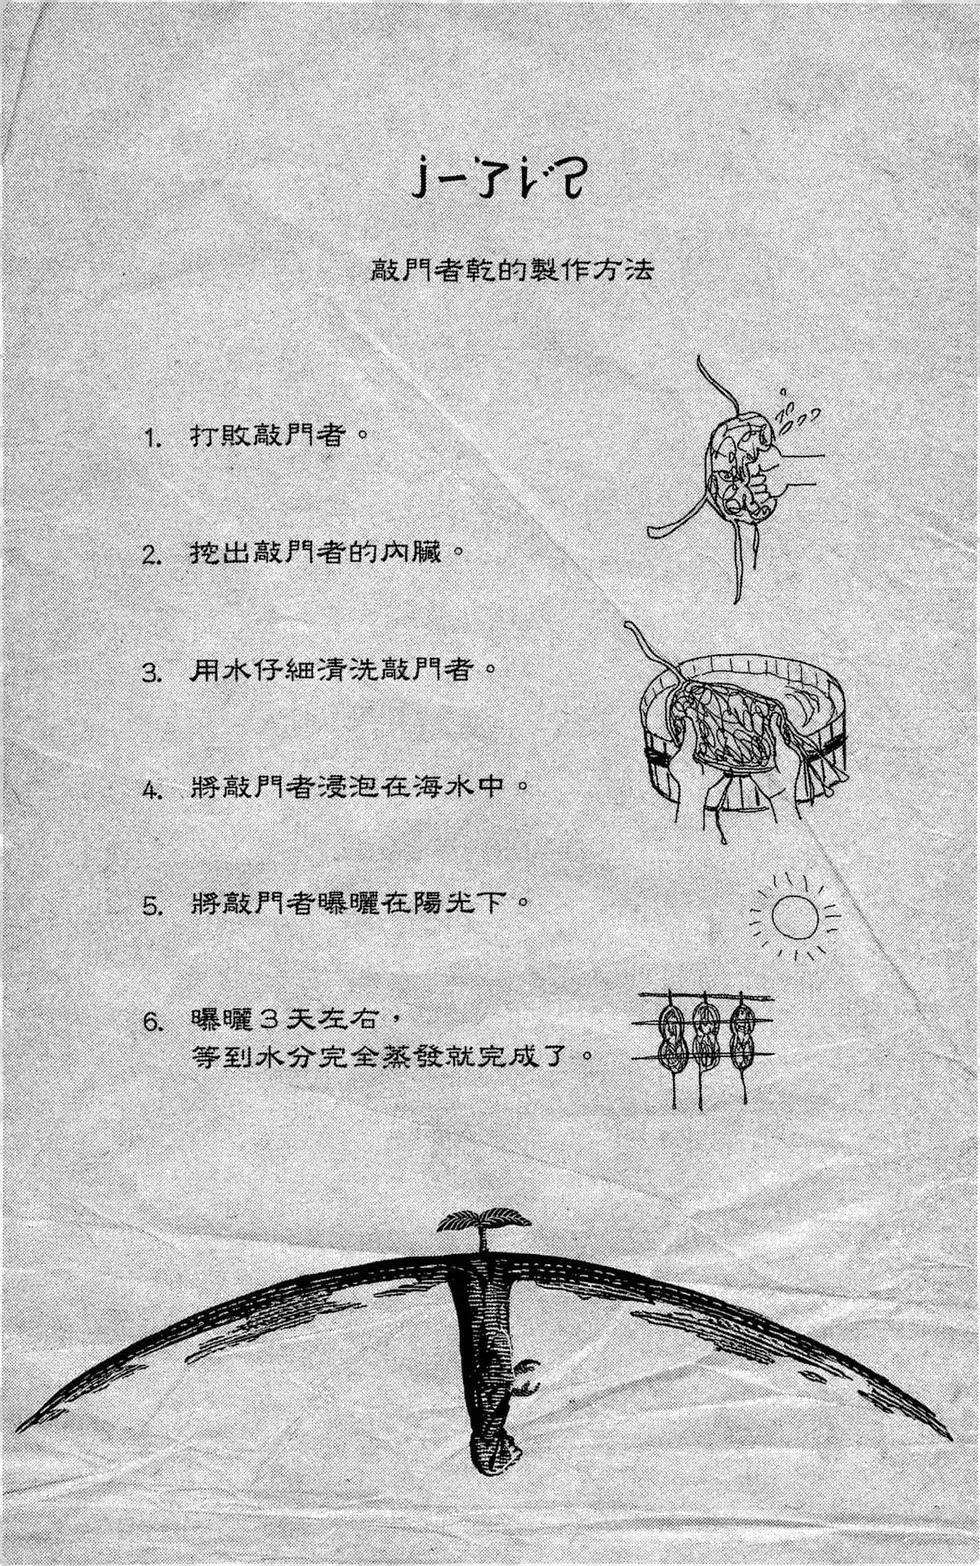 敲門者乾的製作方法
1. 打敗敲門者。
2. 挖出敲門者的內臟。
3. 用水仔細清洗敲門者。
4. 將敲門者浸泡在海水中。
5. 將敲門者曝曬在陽光下。
6. 曝曬3天左右，
等到水分完全蒸發就完成了。